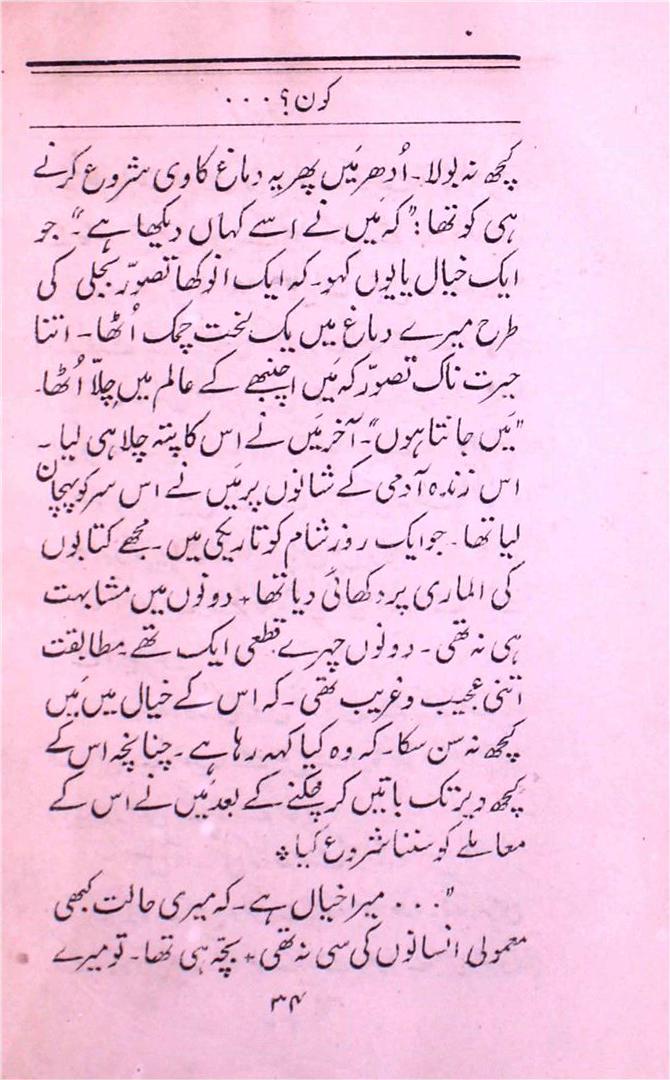 کون؟ . . .
کچھ نہ بولا۔ اُدھر مَیں پھر یہ دماغ کاوی شروع کرنے
ہی کو تھا: "کہ مَیں نے اسے کہاں دیکھا ہے"۔ جو
ایک خیال یا یوں کہو۔ کہ ایک انوکھا تصوّر بجلی کی
طرح میرے دماغ میں یک لخت چمک اُٹھا۔ اتنا
حیرت ناک تصوّر کہ مَیں اچنبھے کے عالم میں چِلّا اُٹھا۔
"مَیں جانتا ہوں"۔ آخر مَیں نے اس کا پتہ چلا ہی لیا۔
اس زندہ آدمی کے شانوں پر مَیں نے اس سر کو پہچان
لیا تھا۔ جو ایک روز شام کو تاریکی میں۔ مجھے کتابوں
کی الماری پر دکھائی دیا تھا۔ دونوں میں مشابہت
ہی نہ تھی۔ دونوں چہرے قطعی ایک تھے۔ مطابقت
اتنی عجیب و غریب تھی۔ کہ اس کے خیال میں مَیں
کچھ نہ سن سکا۔ کہ وہ کیا کہہ رہا ہے۔ چنانچہ اس کے
کچھ دیر تک باتیں کر چکنے کے بعد مَیں نے اس کے
معاملے کو سننا شروع کیا۔
". . . میرا خیال ہے۔ کہ میری حالت کبھی
معمولی انسانوں کی سی نہ تھی۔ بچّہ ہی تھا۔ تو میرے
۳۴